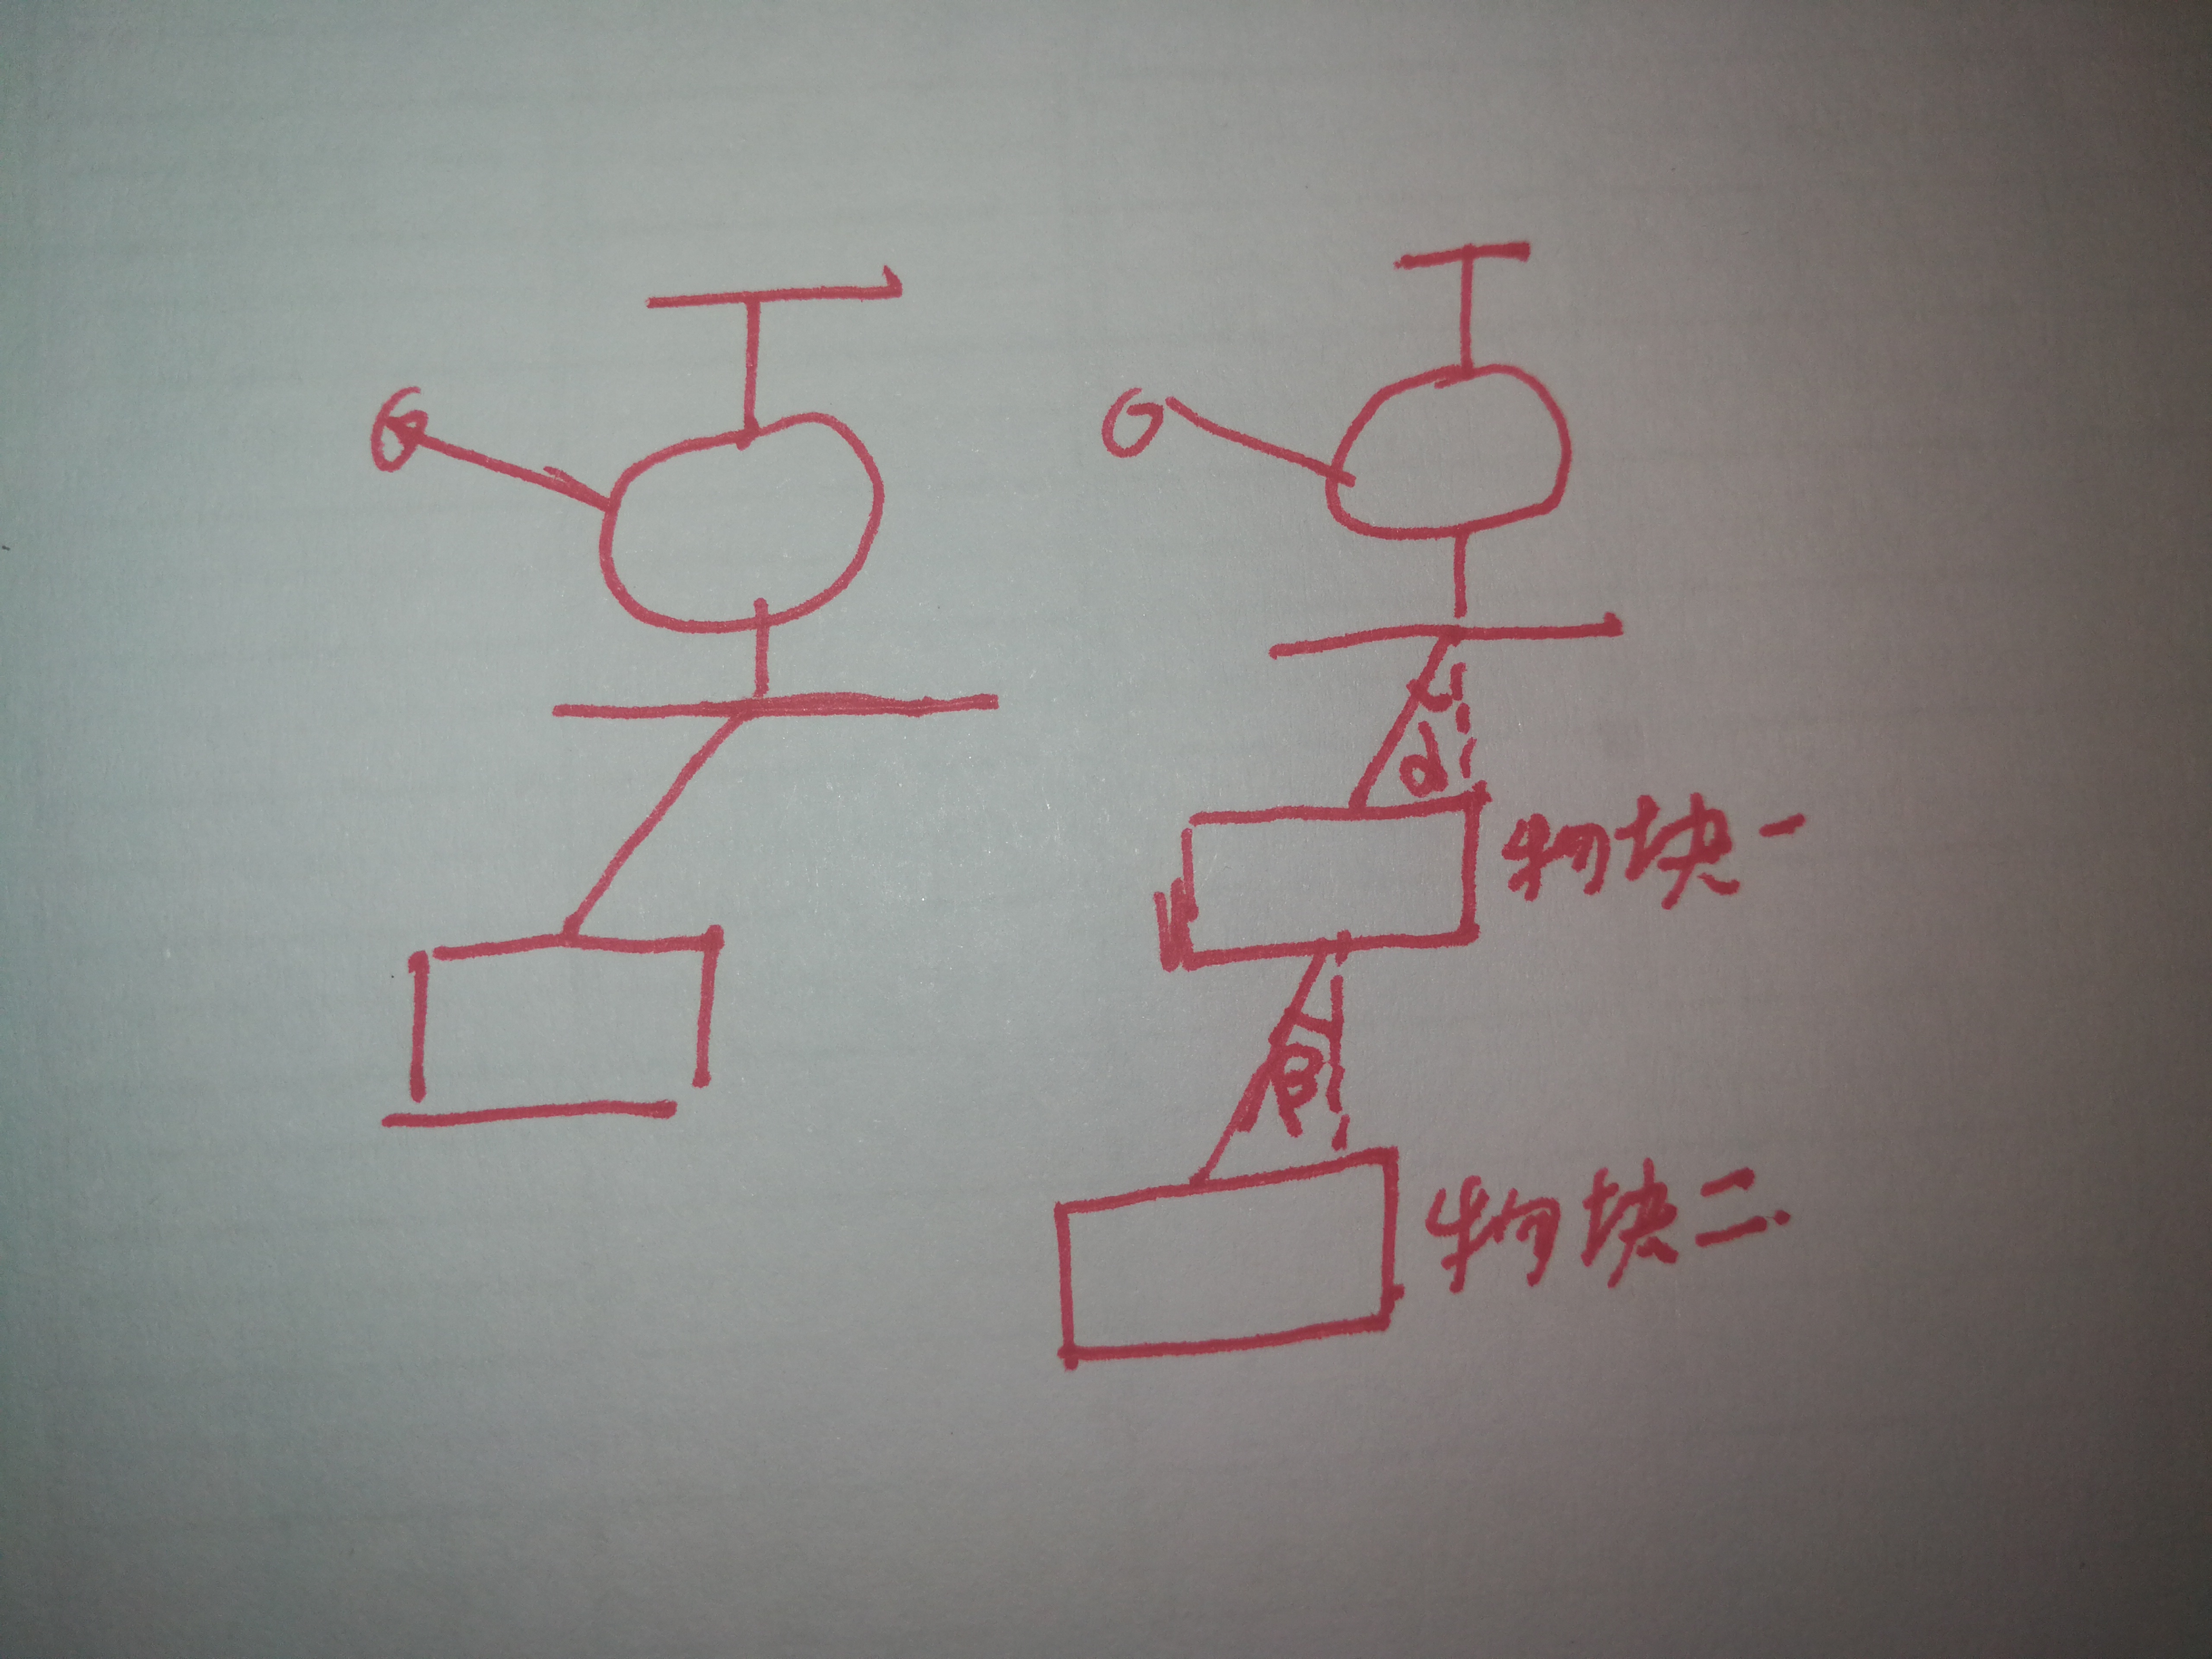 α
物块一
β
物块二